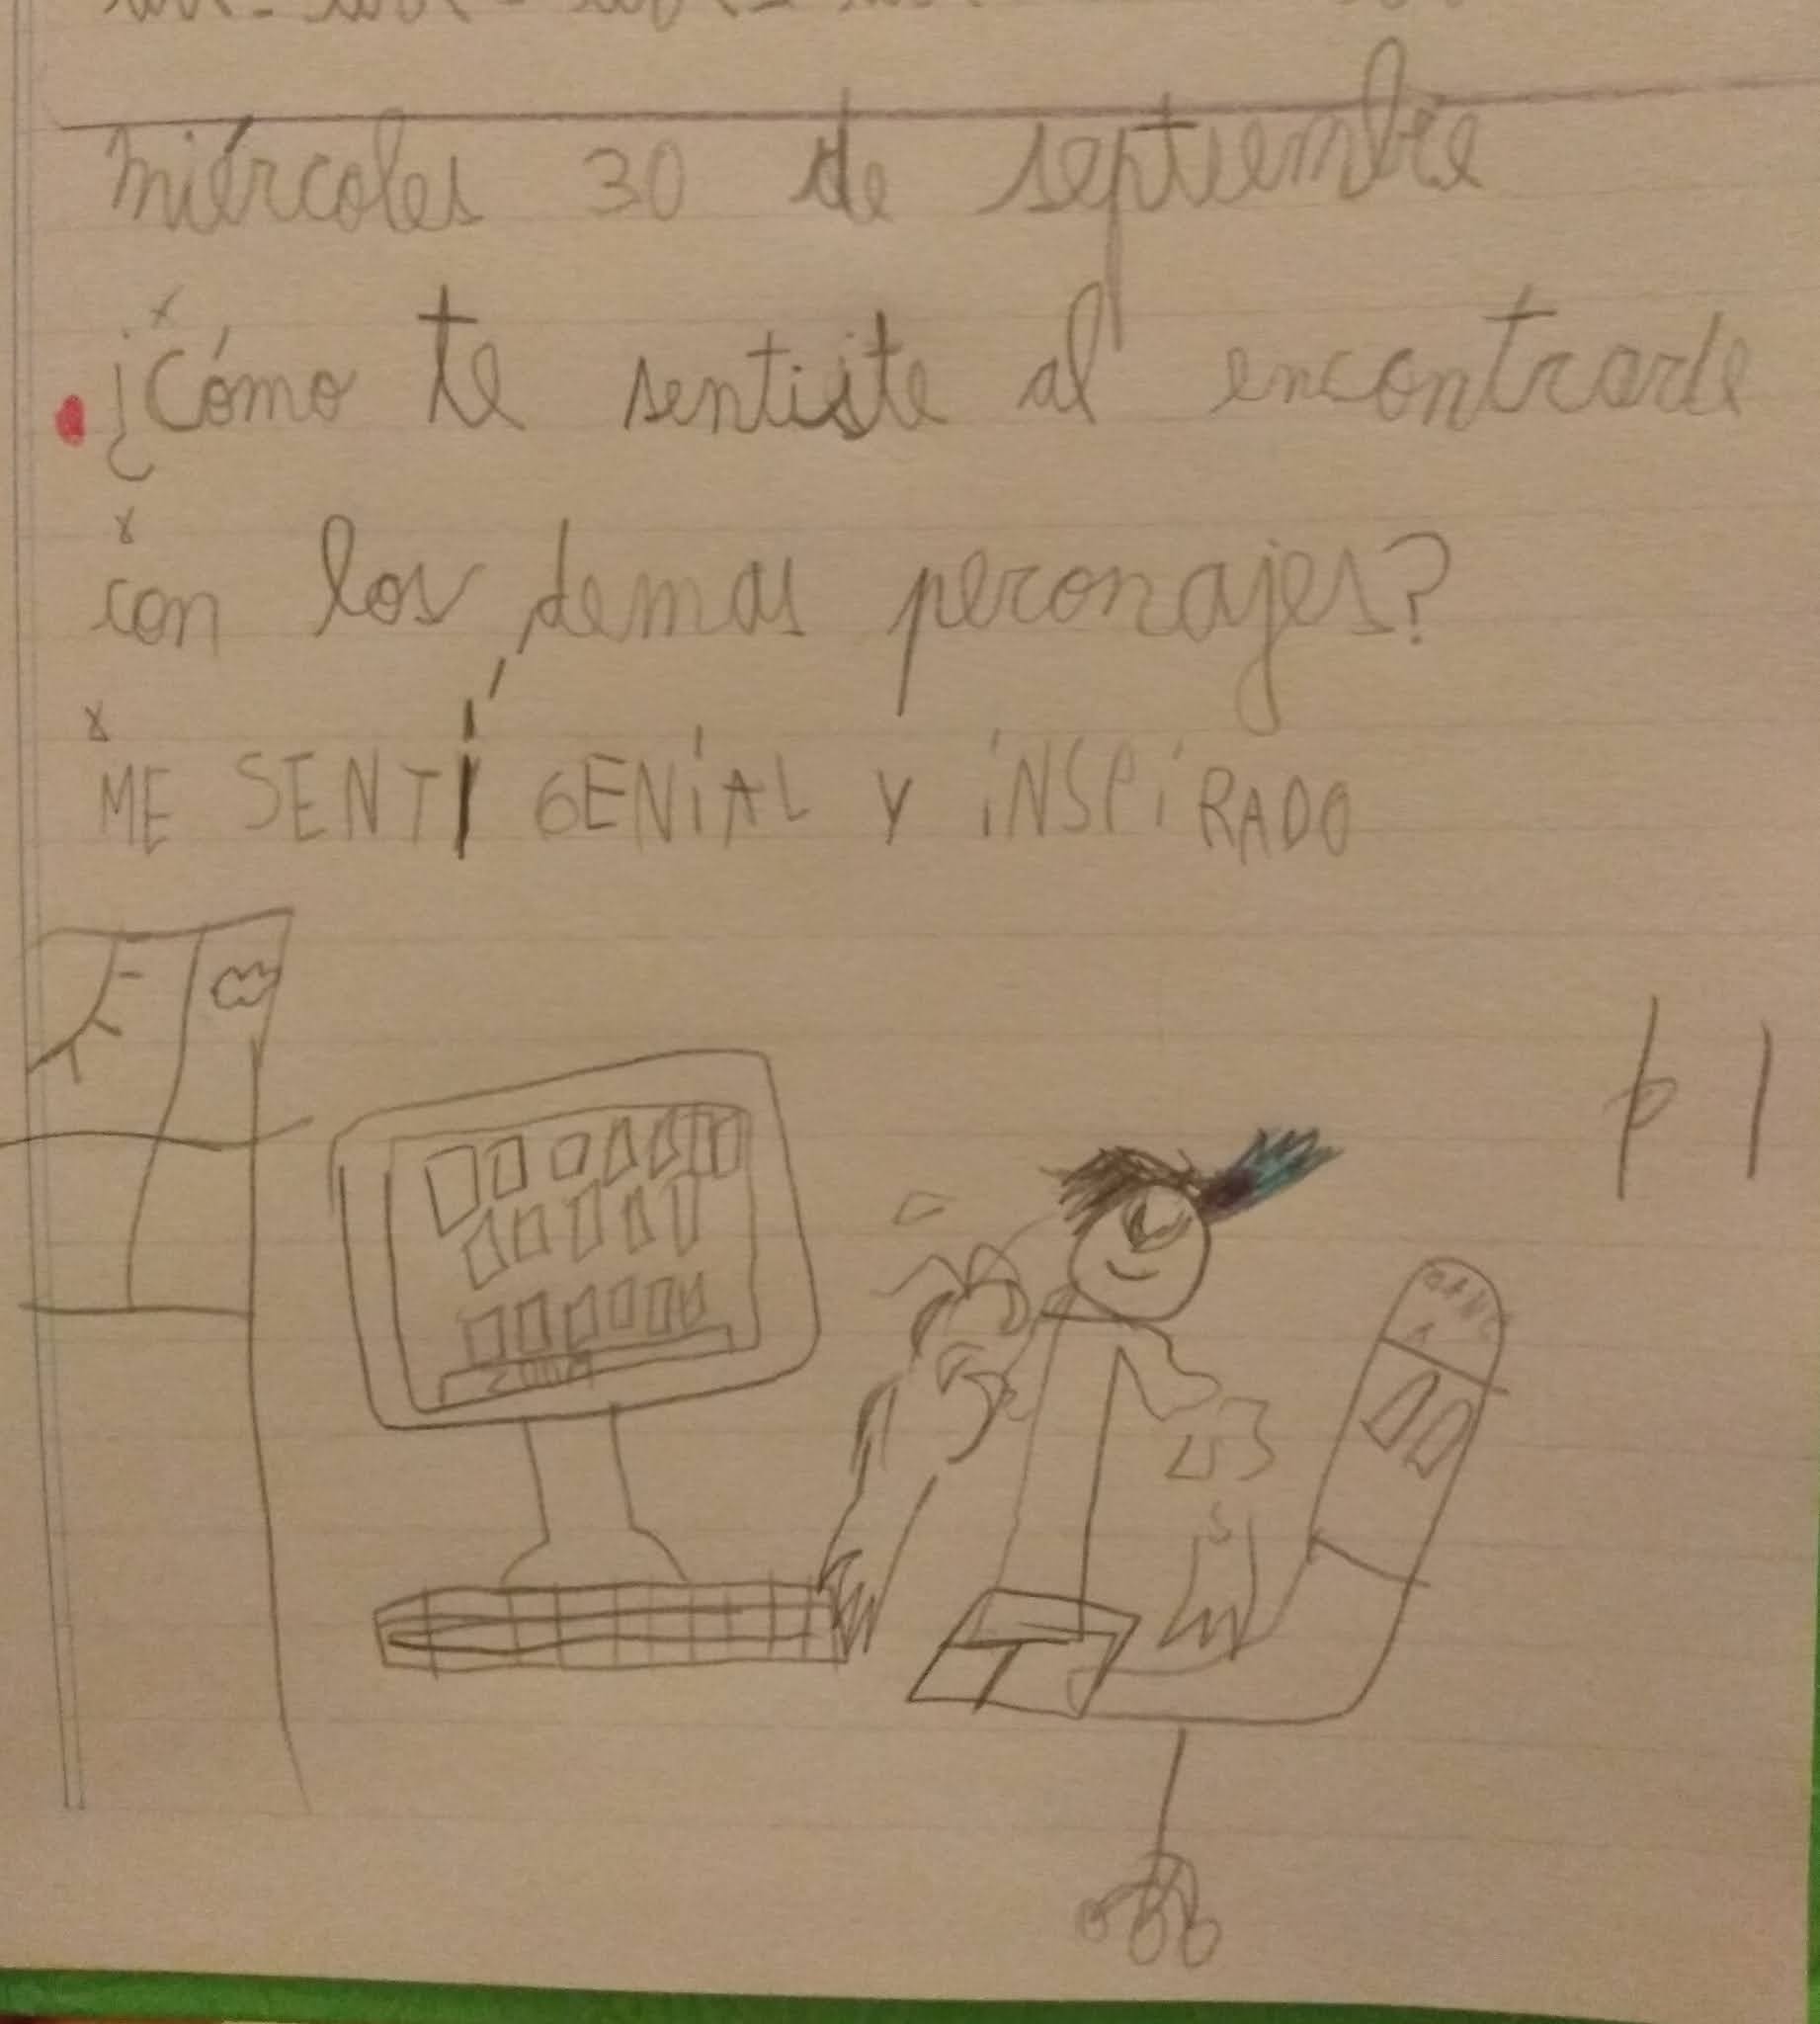 miércoles 30 de septiembre
¿Cómo te sentiste al encontrarte
con los demas peronajes?
ME SENTÍ GENiAL Y iNSPiRADO
ZOOM